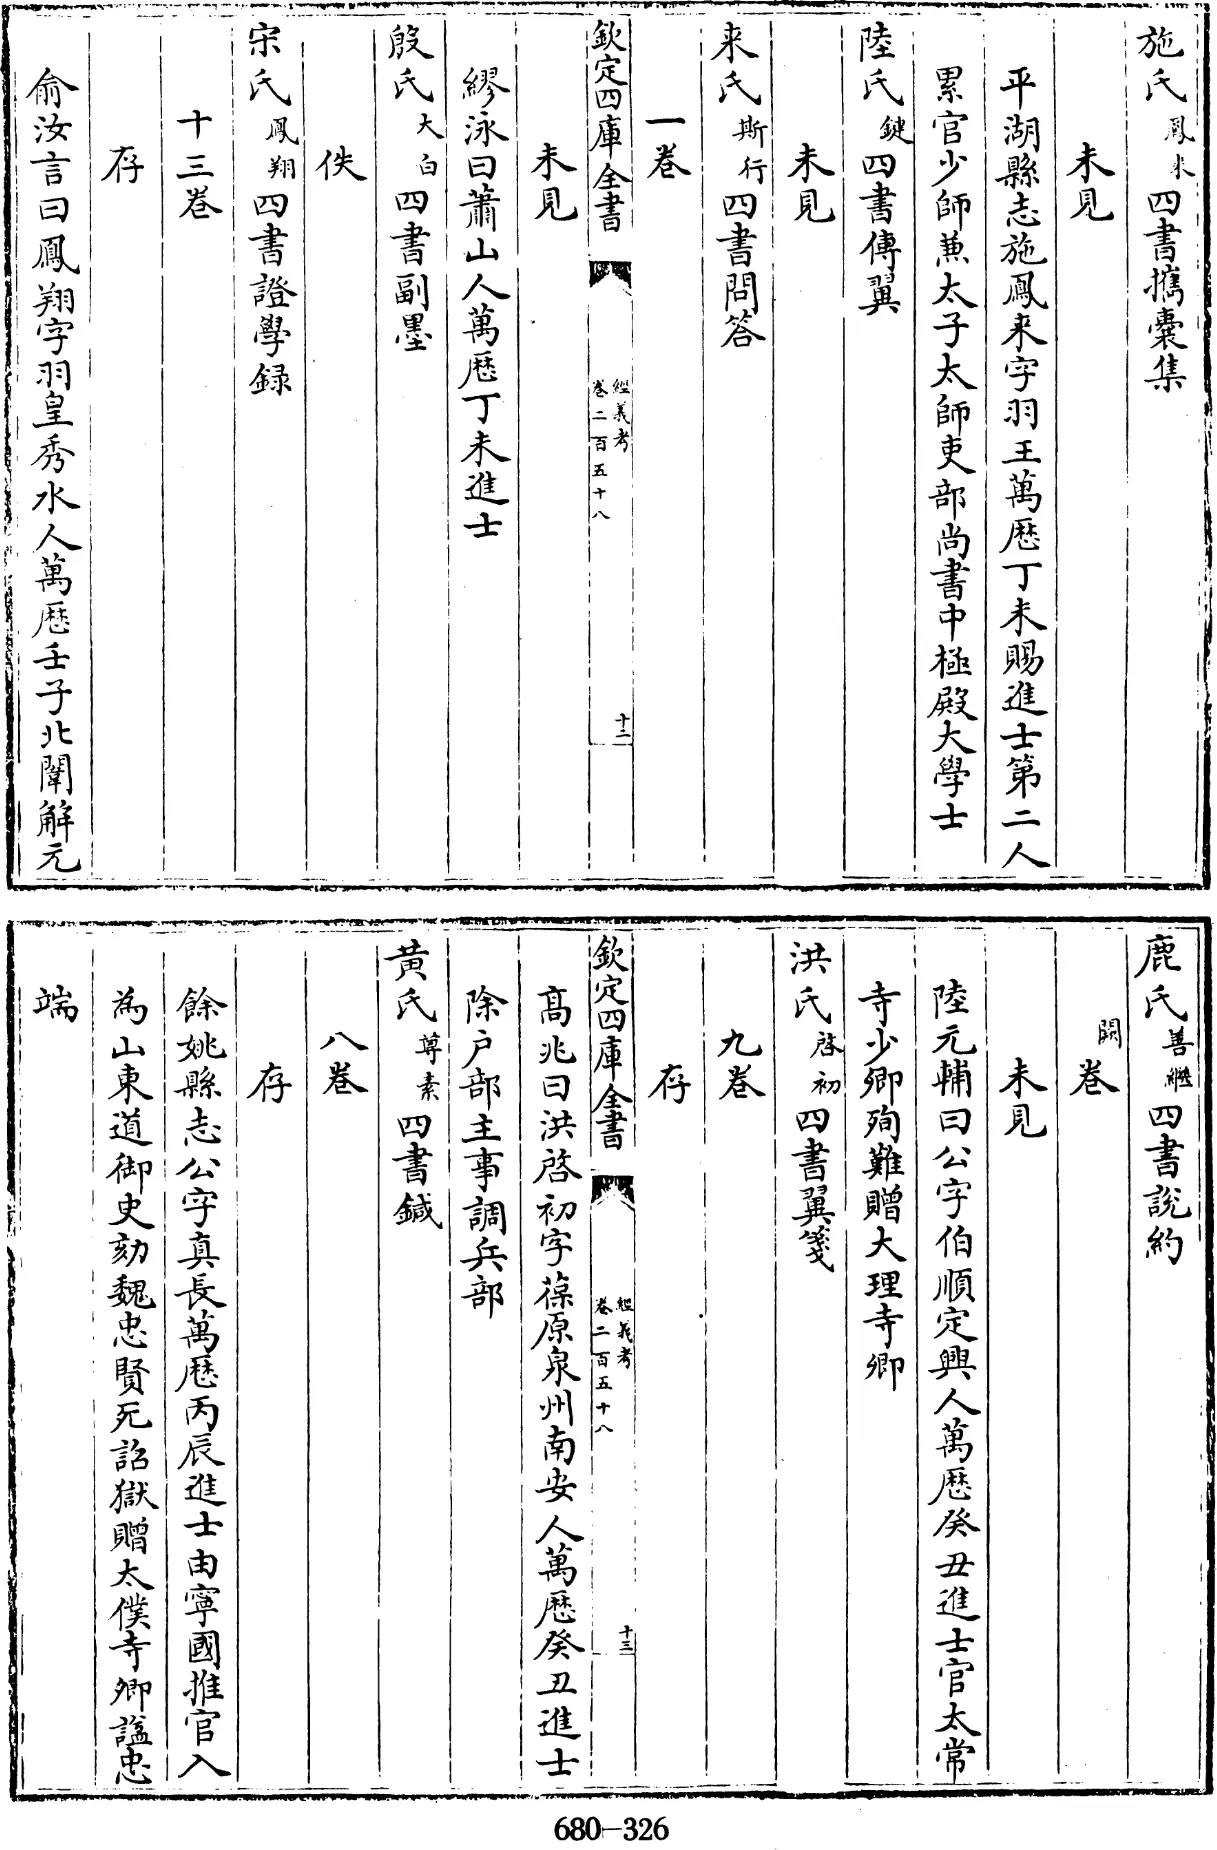 施氏鳳来四書攜囊集
未見
平湖縣志施鳳来字羽王萬歷丁未賜進士第二人
累官少師兼太子太師吏部尚書中極殿大學士
陸氏鍵四書傳翼
未見
来氏斯行四書問答
一卷
欽定四庫全書
經義考
卷二百五十八
十二
未見
繆泳曰蕭山人萬歷丁未進士
殷氏大白四書副墨
佚
宋氏鳳翔四書證學録
十三卷
存
俞汝言曰鳳翔字羽皇秀水人萬歷壬子北闈解元
鹿氏善繼四書説約
闕卷
未見
陸元輔曰公字伯順定興人萬歷癸丑進士官太常
寺少卿殉難贈大理寺卿
洪氏啓初四書翼箋
九卷
存
欽定四庫全書
經義考
卷二百五十八
十三
髙兆曰洪啓初字葆原泉州南安人萬歷癸丑進士
除户部主事調兵部
黄氏尊素四書鍼
八卷
存
餘姚縣志公字真長萬歷丙辰進士由寧國推官入
為山東道御史劾魏忠賢死詔獄贈太僕寺卿諡忠
端
680-326